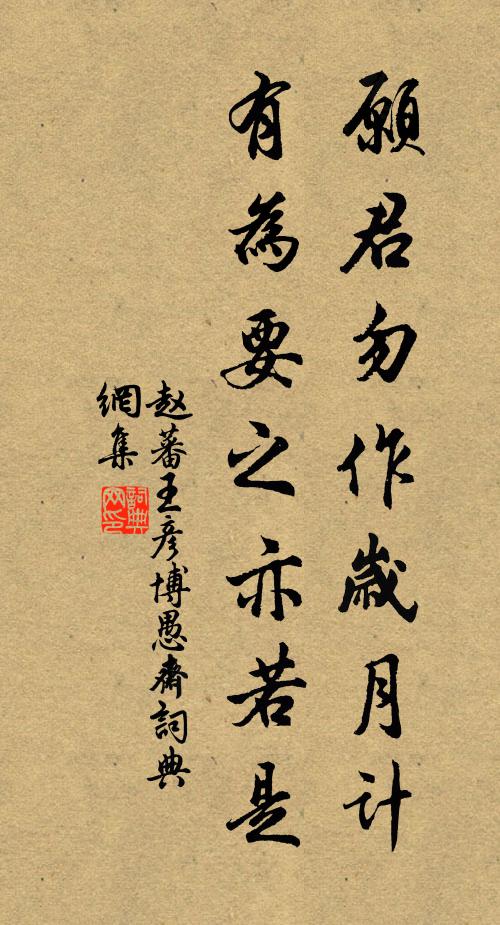 願君勿作歲月计
有為要之亦若是
赵蕃王彦博愚齋詞典
網集
詞典
网印